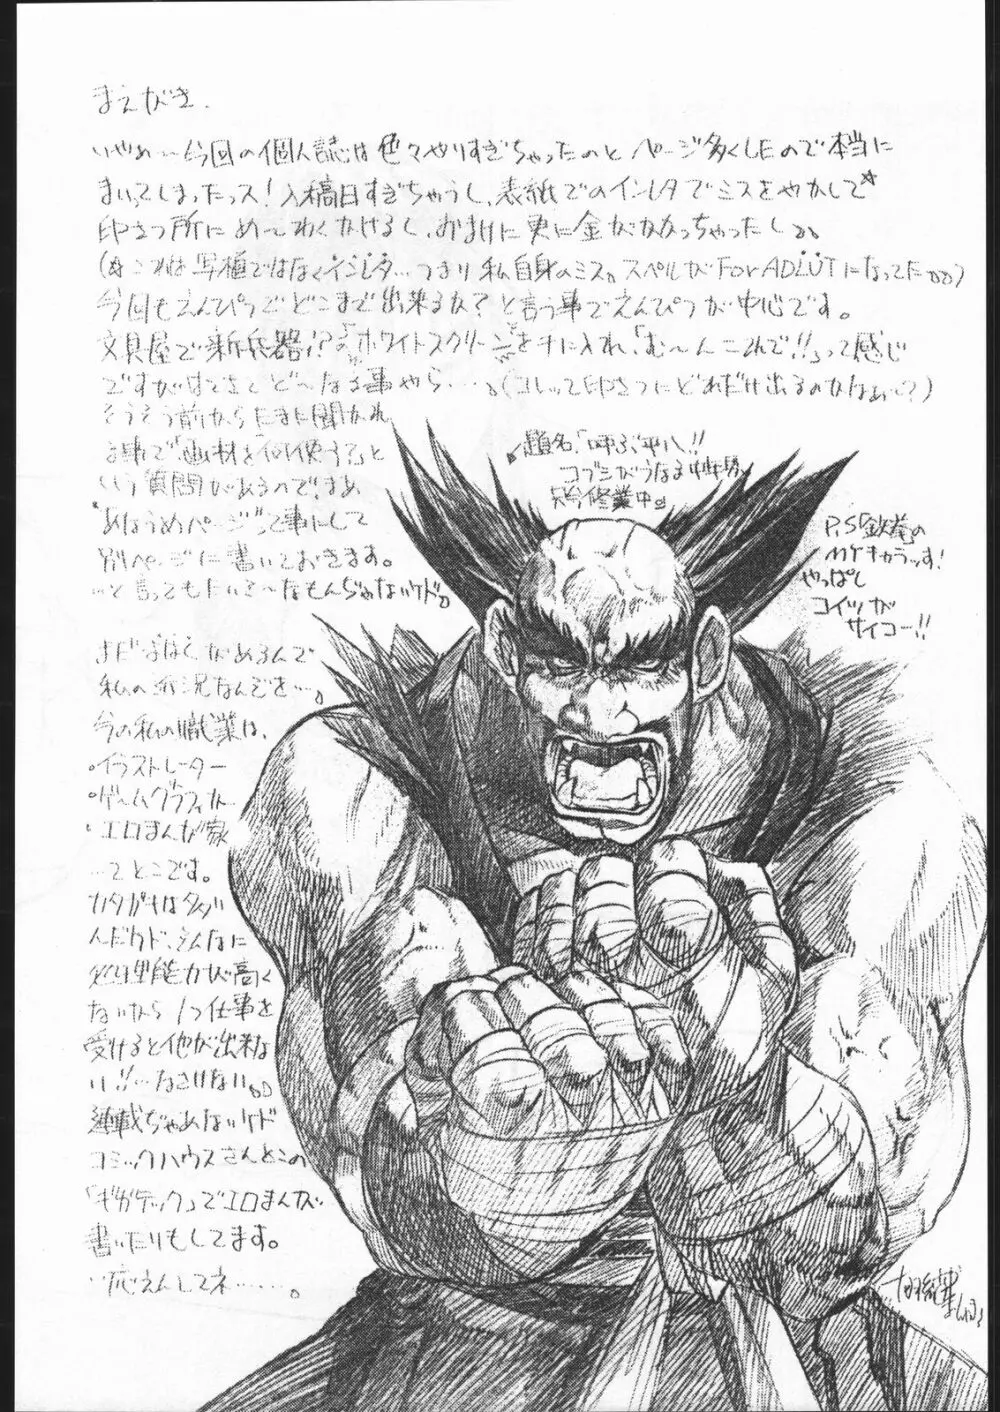 まえがき.
いやぁ〜今回の個人誌は色々やりすぎちゃったのと ページ多くしたので本当に
まいってしまったっス!入稿日すぎちゃうし、表紙でのインレタでミスをやかして☆
印さつ所にめ〜わくかけるし、おまけに更に金がかかっちゃったし。
(☆これは写植ではなくインレタ…つまり私自身のミス。スペルがFOR ADLUTになってた。。)
今回もえんぴつでどこまで出来るか?と言う事でえんぴつが中心です。
文具屋で新兵器!?の「ホワイトスクリーン」を手に入れ、「む〜んこれで!!」って感じ
ですがはてさてど〜なる事やら……。(コレって印さつにどれだけ出るのかなぁ〜?)
そうそう前からたまに聞かれ
る事で「画材を何使う?」と
いう質問があるので、まぁ
"あほうめページ"って事にして
別ページに書いておきます。
…と言ってもたいそ〜なもんぢゃないケド。
まだよはくがあるんで
私の近況なんぞを…。
今の私の職業は、
・イラストレーター
・ゲームグラフィッカー
・エロまんが家
…てとこです。
カタガキは多い
んだケド、そんなに
処理能力が高く
ないから1つ仕事を
受けると他が出来な
い!!…なさけない。。
連載ぢゃぁないケド
コミックハウスさんとこの
「ギガテック」でエロまんが
書いたりもしてます。
…応えんしてネ……。
題名、「叫ぶ平八!!
コブシがうなる
只今修業中。
P.S「鉄拳」の
MYキャラっす!
やっぱし
コイツが
サイコー!!